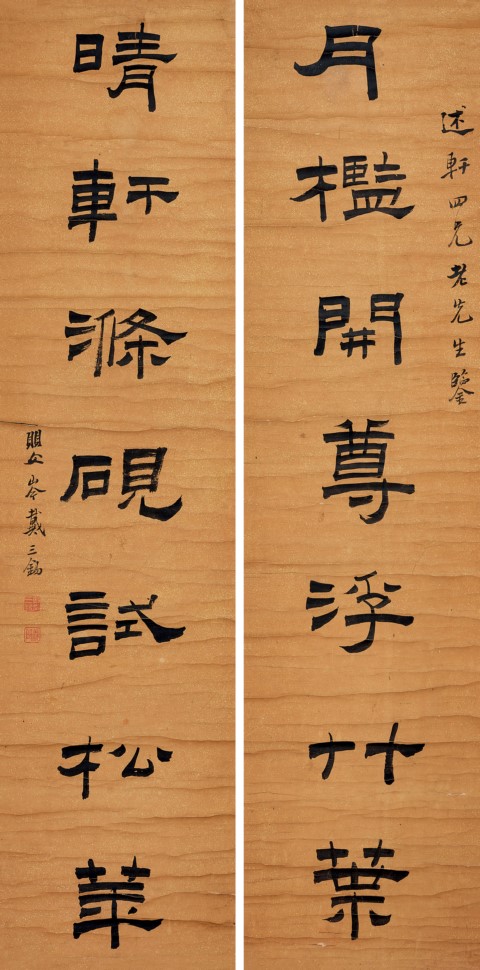 述軒四兄老先生鑒
月檻開尊浮竹葉
晴軒滌硯試松華
戴三錫